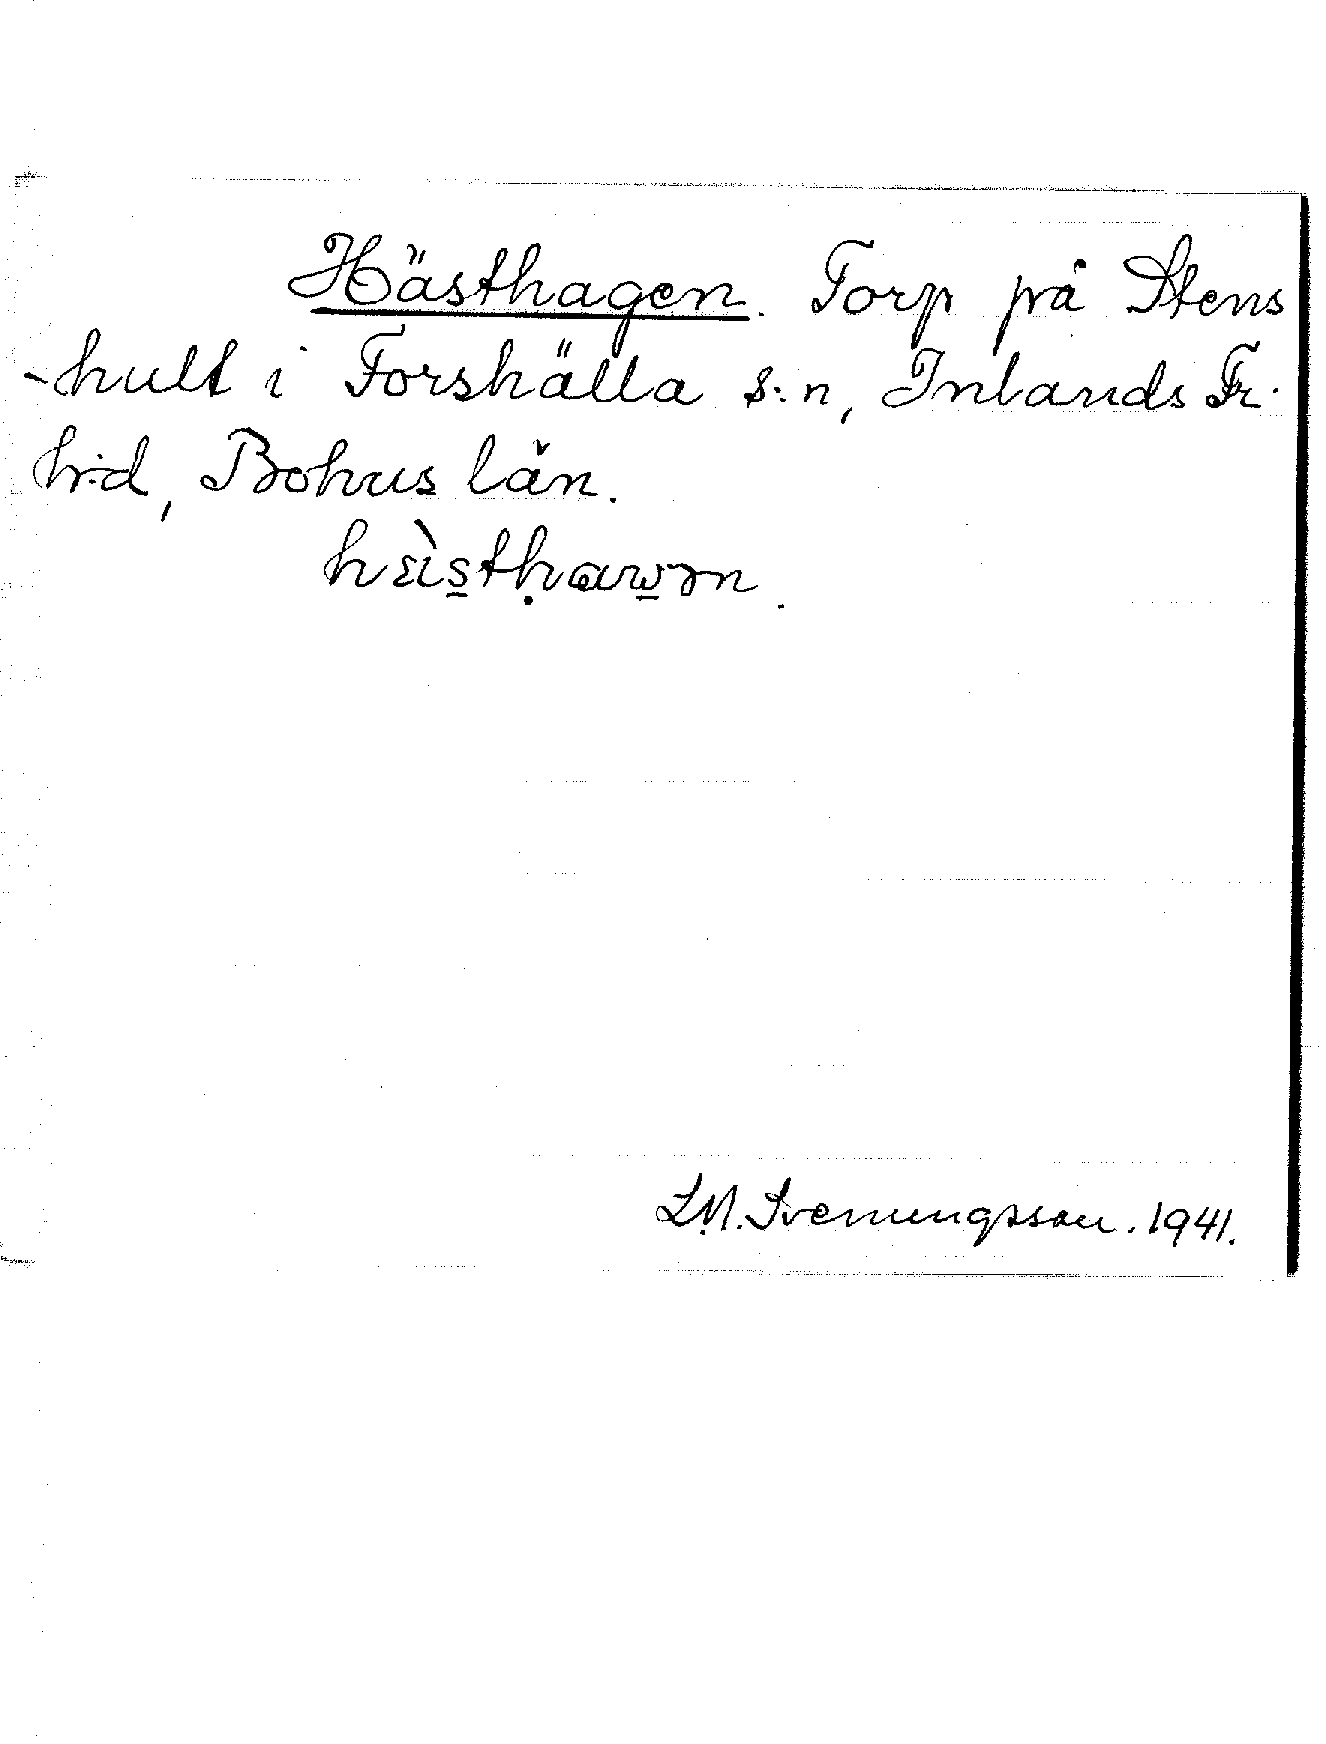 Hästhagen. Torp på Stens
-hult i Forshälla s:n, Inlands Fr.
h:d, Bohus län.
hɛ̀s̲tḥaw̲ən.
L.M. Svenungsson. 1941.